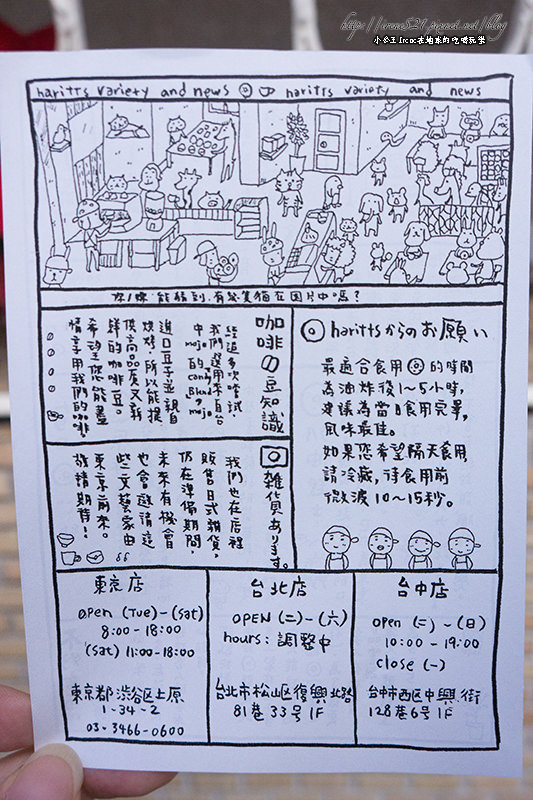 http://irene521.pixnet.net/blog
小公主Irene在地球的吃喝玩樂
haritts variety and news haritts variety and news
你/妳能猜到,有幾隻貓在圖片中嗎?
咖啡豆知識
經過多次嘗試,
我們選用來自台
中mojo的 candy
Blend mojo
進口豆子並親自
烘烤,所以能提
供高品質又新
鮮的咖啡豆。
希望您能盡
情享用我們的咖啡
雜貨あります。
我們也在店裡
販售日式雜貨,
仍在準備期間,
未來有機會
也會邀請這
些文藝家由
東京前來。
敬請期待!
harittsからのお願い
最適合食用◎的時間
為油炸後1~5小時,
建議為當日食用完畢,
風味最佳。
如果您希望隔天食用,
請冷藏,待食用前
微波10~15秒。
東京店
open (Tue)-(sat)
8:00-18:00
(sat) 11:00-18:00
東京都渋谷区上原
1-34-2
03-3466-0600
台北店
OPEN (二)-(六)
hours: 調整中
台北市松山区復興北路
81巷33号1F
台中店
open (二)~(日)
10:00-19:00
close (一)
台中市西区中興街
128巷6号1F